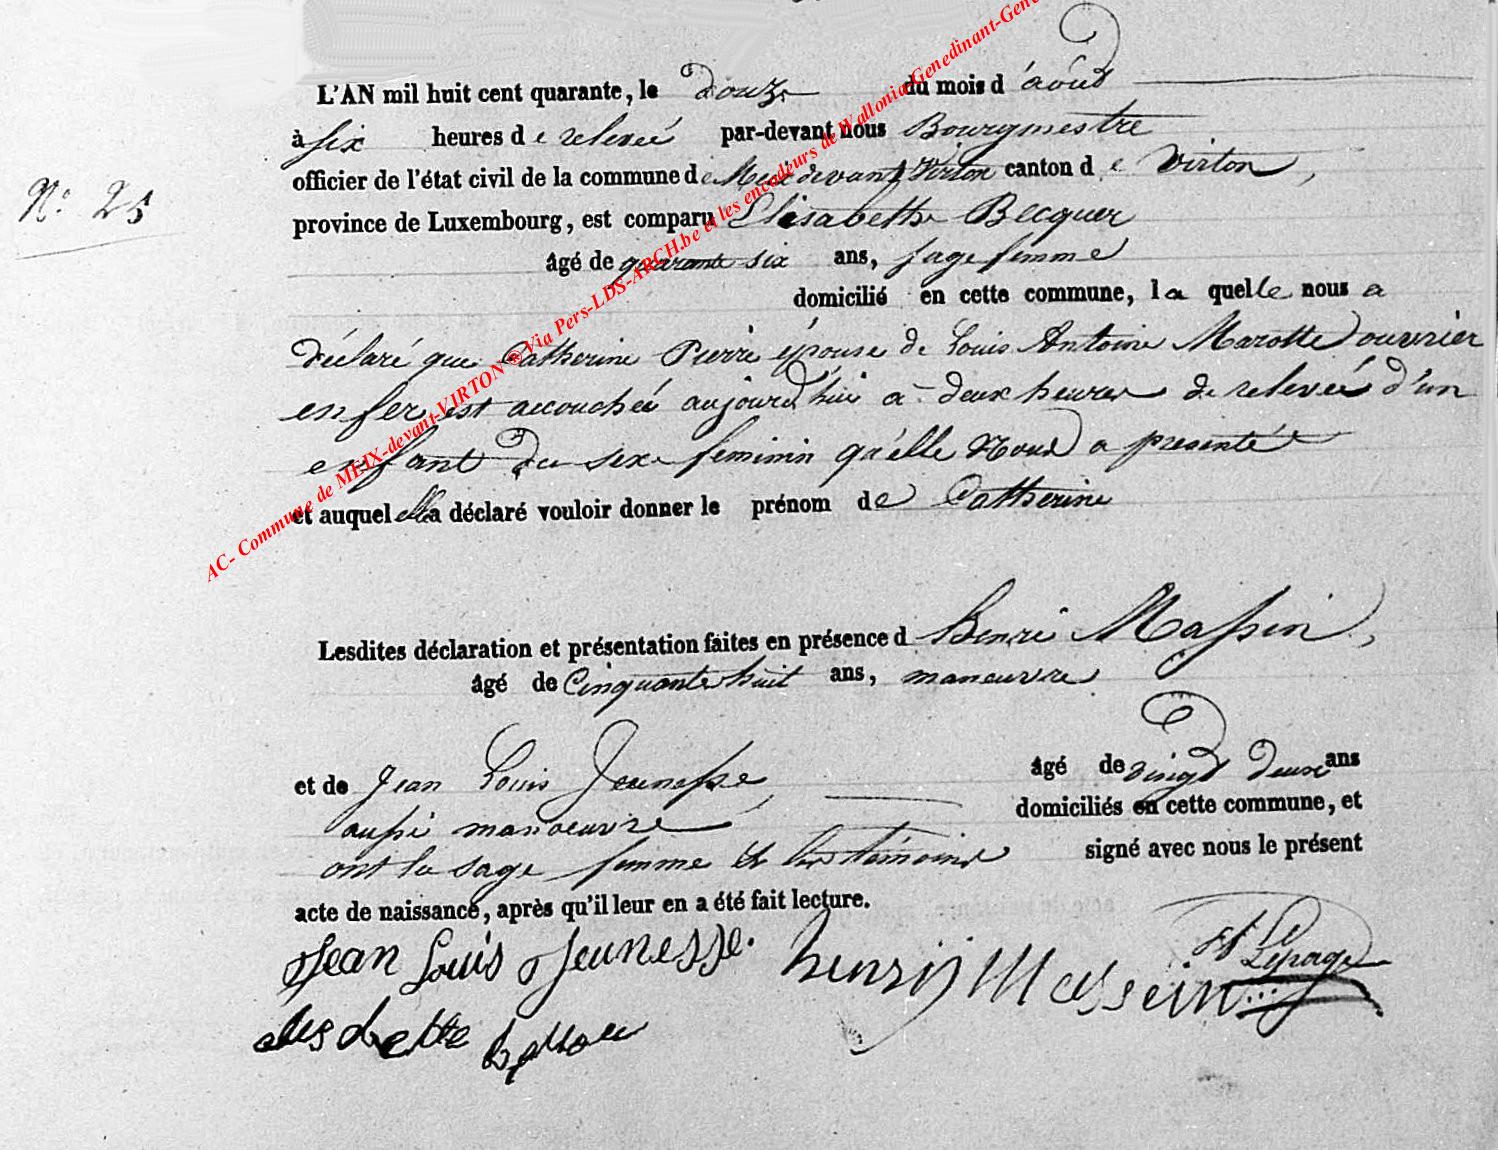 L'AN mil huit cent quarante, le douze du mois d'août
à six heures de relevée par-devant nous Bourgmestre
N° 25
officier de l'état civil de la commune de Meix devant Virton canton de Virton,
province de Luxembourg, est comparu Elisabethe Becquer
âgé de quarante six ans, sage femme
domicilié en cette commune, laquelle nous a
déclaré que Catherine Pierre épouse de Louis Antoine Marotte ouvrier
en fer est accouchée aujourd'hui à deux heures de relevée d'un
enfant du sexe feminin qu'elle Nous a presenté
et auquel elle a déclaré vouloir donner le prénom de Catherine
Lesdites déclaration et présentation faites en présence d Henri Massin,
âgé de Cinquante huit ans, manœuvre
et de Jean Louis Jeunesse, âgé de vingt deux ans
aussi manoeuvre domiciliés en cette commune, et
ont la sage femme et les témoins signé avec nous le présent
acte de naissance, après qu'il leur en a été fait lecture.
Jean Louis Jeunesse. henrij Massein Lepage
AC- Commune de MEIX-devant-VIRTON @ Via Pers-LDS-ARCH.be et les encodeurs de Wallonia-Genedinant-Gene